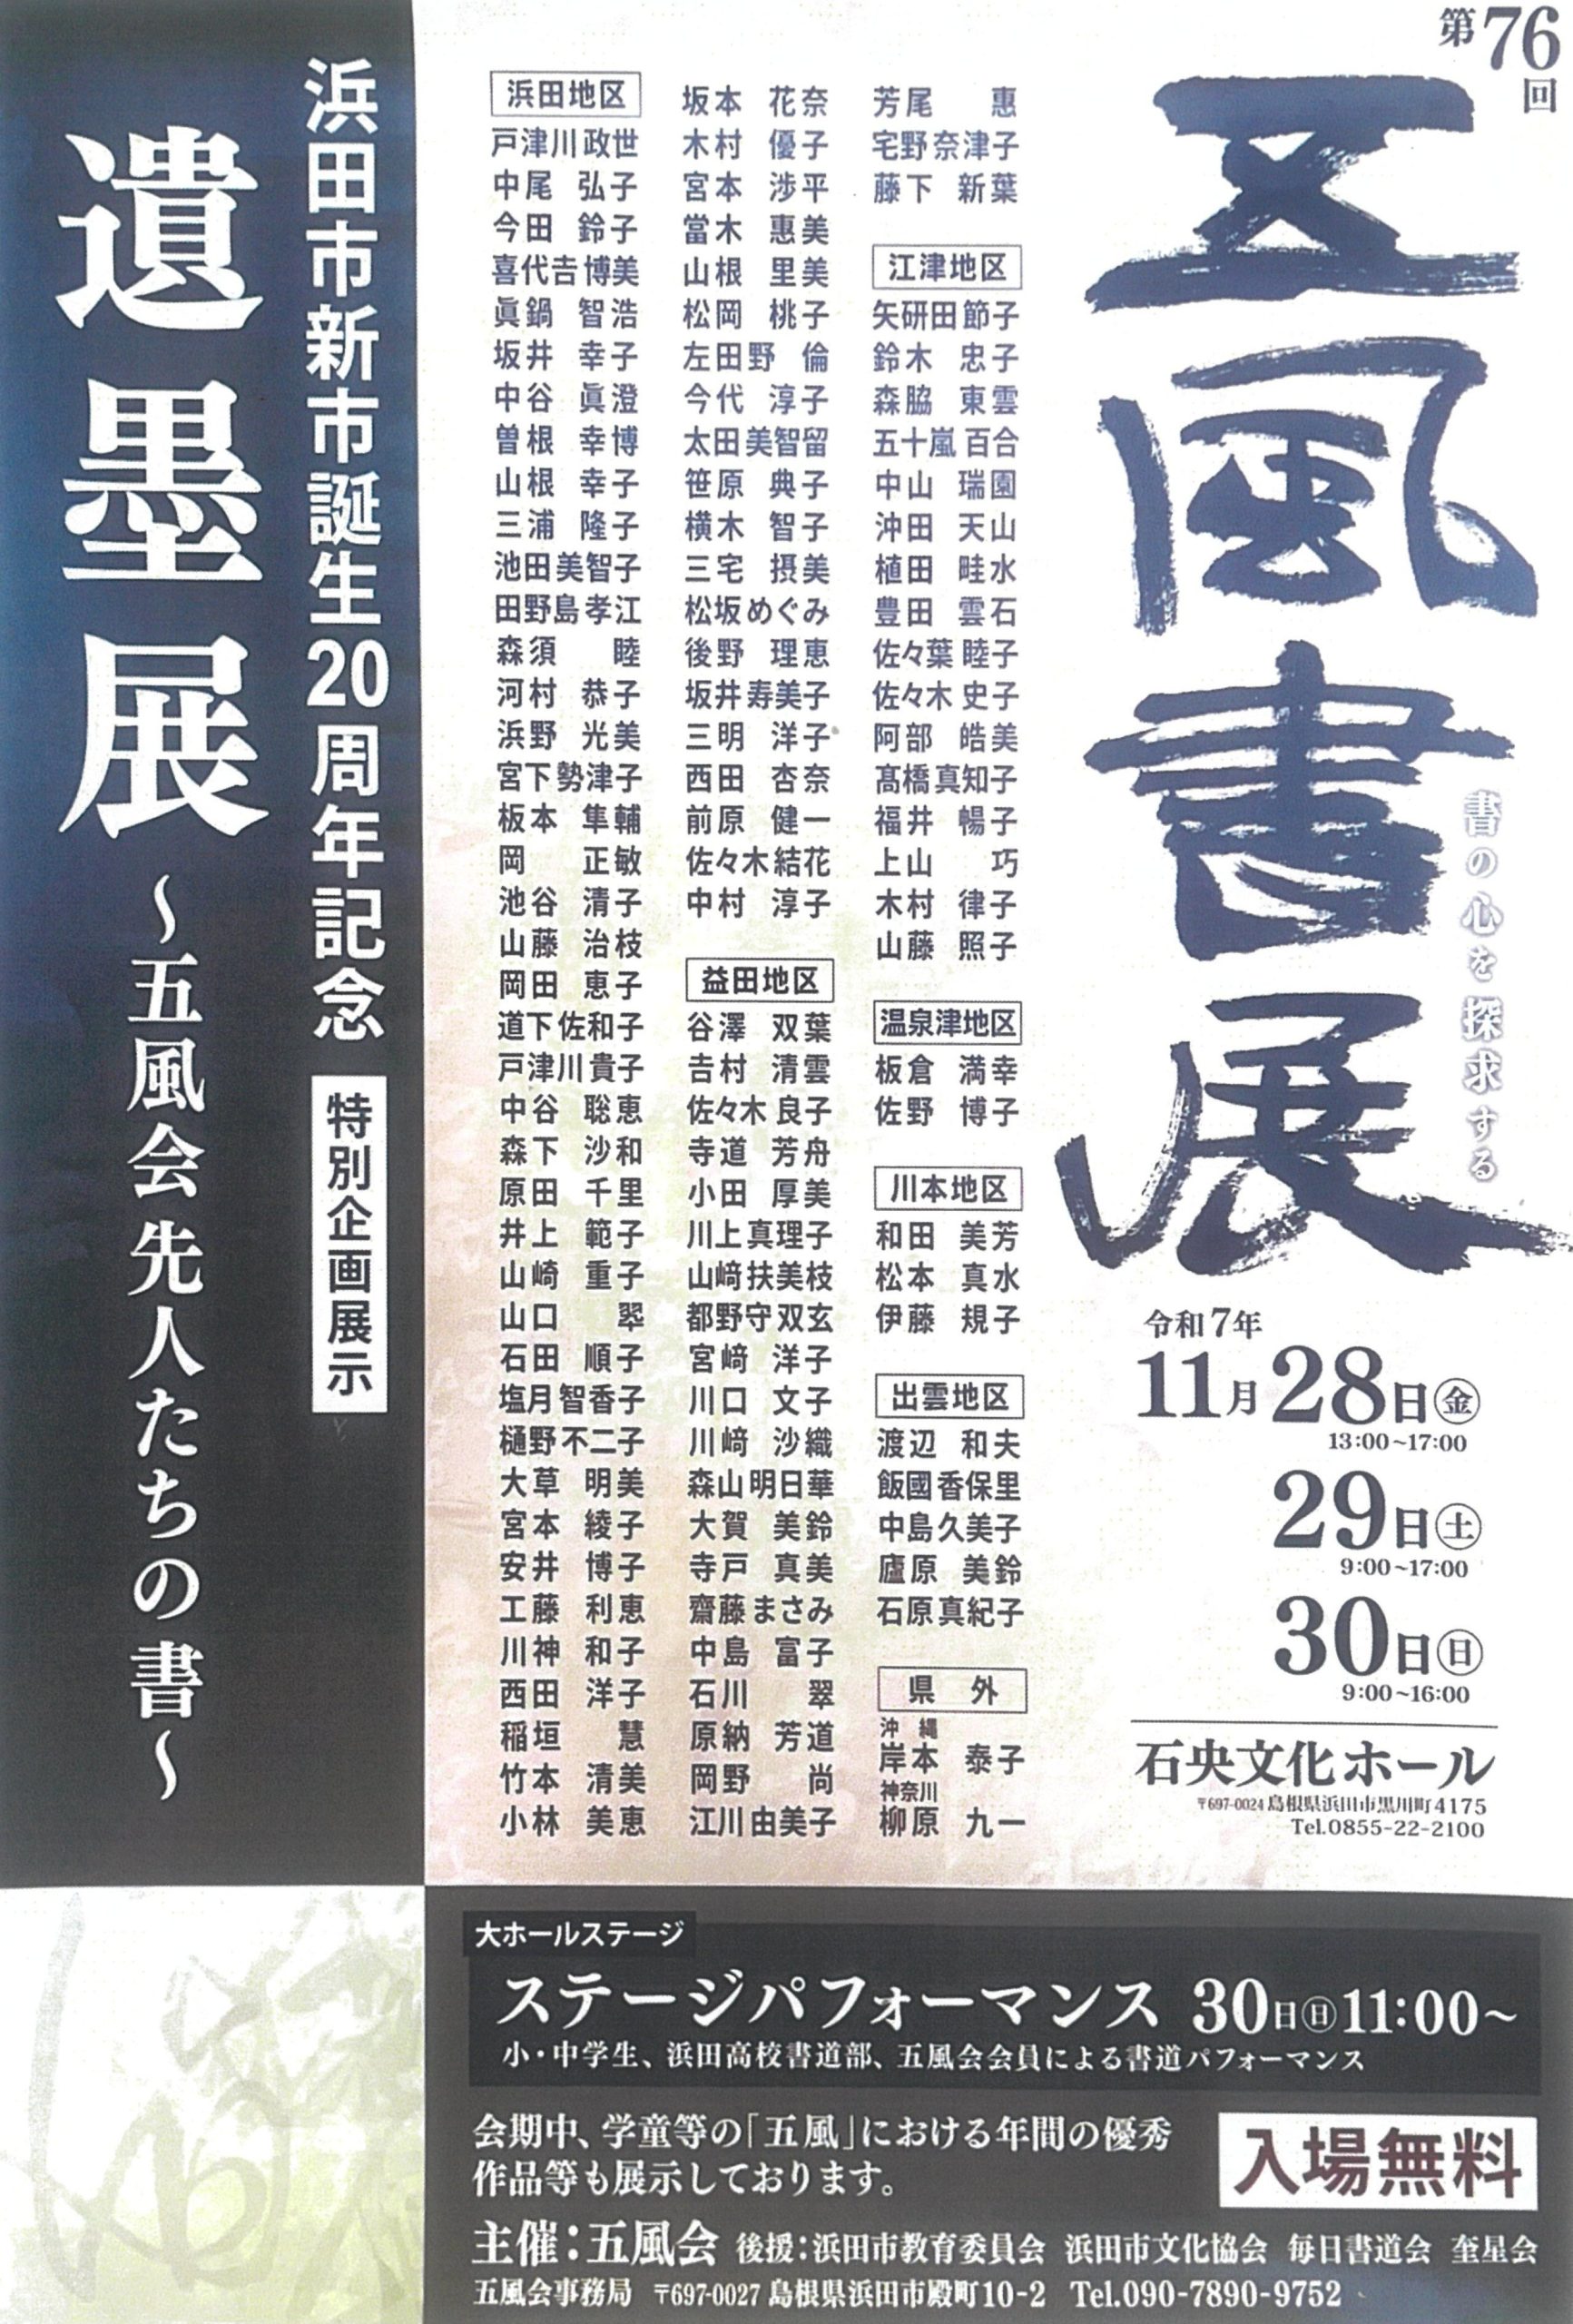 第76回
五風書展
書の心を探求する
令和7年
11月28日㊎
13:00~17:00
29日㊏
9:00~17:00
30日㊐
9:00~16:00
石央文化ホール
〒697-0024 島根県浜田市黒川町4175
Tel.0855-22-2100
浜田市新市誕生20周年記念 特別企画展示
遺墨展 ～五風会先人たちの書～
浜田地区
戸津川政世
中尾 弘子
今田 鈴子
喜代吉博美
眞鍋 智浩
坂井 幸子
中谷 眞澄
曽根 幸博
山根 幸子
三浦 隆子
池田美智子
田野島孝江
森須 睦
河村 恭子
浜野 光美
宮下勢津子
板本 隼輔
岡 正敏
池谷 清子
山藤 治枝
岡田 恵子
道下佐和子
戸津川貴子
中谷 聡恵
森下 沙和
原田 千里
井上 範子
山崎 重子
山口 翠
石田 順子
塩月智香子
樋野不二子
大草 明美
宮本 綾子
安井 博子
工藤 利恵
川神 和子
西田 洋子
稲垣 慧
竹本 清美
小林 美恵
坂本 花奈
木村 優子
宮本 渉平
當木 惠美
山根 里美
松岡 桃子
左田野 倫
今代 淳子
太田美智留
笹原 典子
横木 智子
三宅 摂美
松坂めぐみ
後野 理恵
坂井寿美子
三明 洋子
西田 杏奈
前原 健一
佐々木結花
中村 淳子
益田地区
谷澤 双葉
吉村 清雲
佐々木良子
寺道 芳舟
小田 厚美
川上真理子
山﨑扶美枝
都野守双玄
宮﨑 洋子
川口 文子
川﨑 沙織
森山明日華
大賀 美鈴
寺戸 真美
齋藤まさみ
中島 富子
石川 翠
原納 芳道
岡野 尚
江川由美子
芳尾 惠
宅野奈津子
藤下 新葉
江津地区
矢研田節子
鈴木 忠子
森脇 東雲
五十嵐百合
中山 瑞園
沖田 天山
植田 畦水
豊田 雲石
佐々葉睦子
佐々木史子
阿部 皓美
髙橋真知子
福井 暢子
上山 巧
木村 律子
山藤 照子
温泉津地区
板倉 満幸
佐野 博子
川本地区
和田 美芳
松本 真水
伊藤 規子
出雲地区
渡辺 和夫
飯國香保里
中島久美子
廬原 美鈴
石原真紀子
県 外
沖 縄
岸本 泰子
神奈川
柳原 九一
大ホールステージ
ステージパフォーマンス 30日㊐11:00~
小・中学生、浜田高校書道部、五風会会員による書道パフォーマンス
会期中、学童等の「五風」における年間の優秀
作品等も展示しております。
入場無料
主催：五風会 後援：浜田市教育委員会 浜田市文化協会 毎日書道会 奎星会
五風会事務局 〒697-0027 島根県浜田市殿町10-2 Tel.090-7890-9752